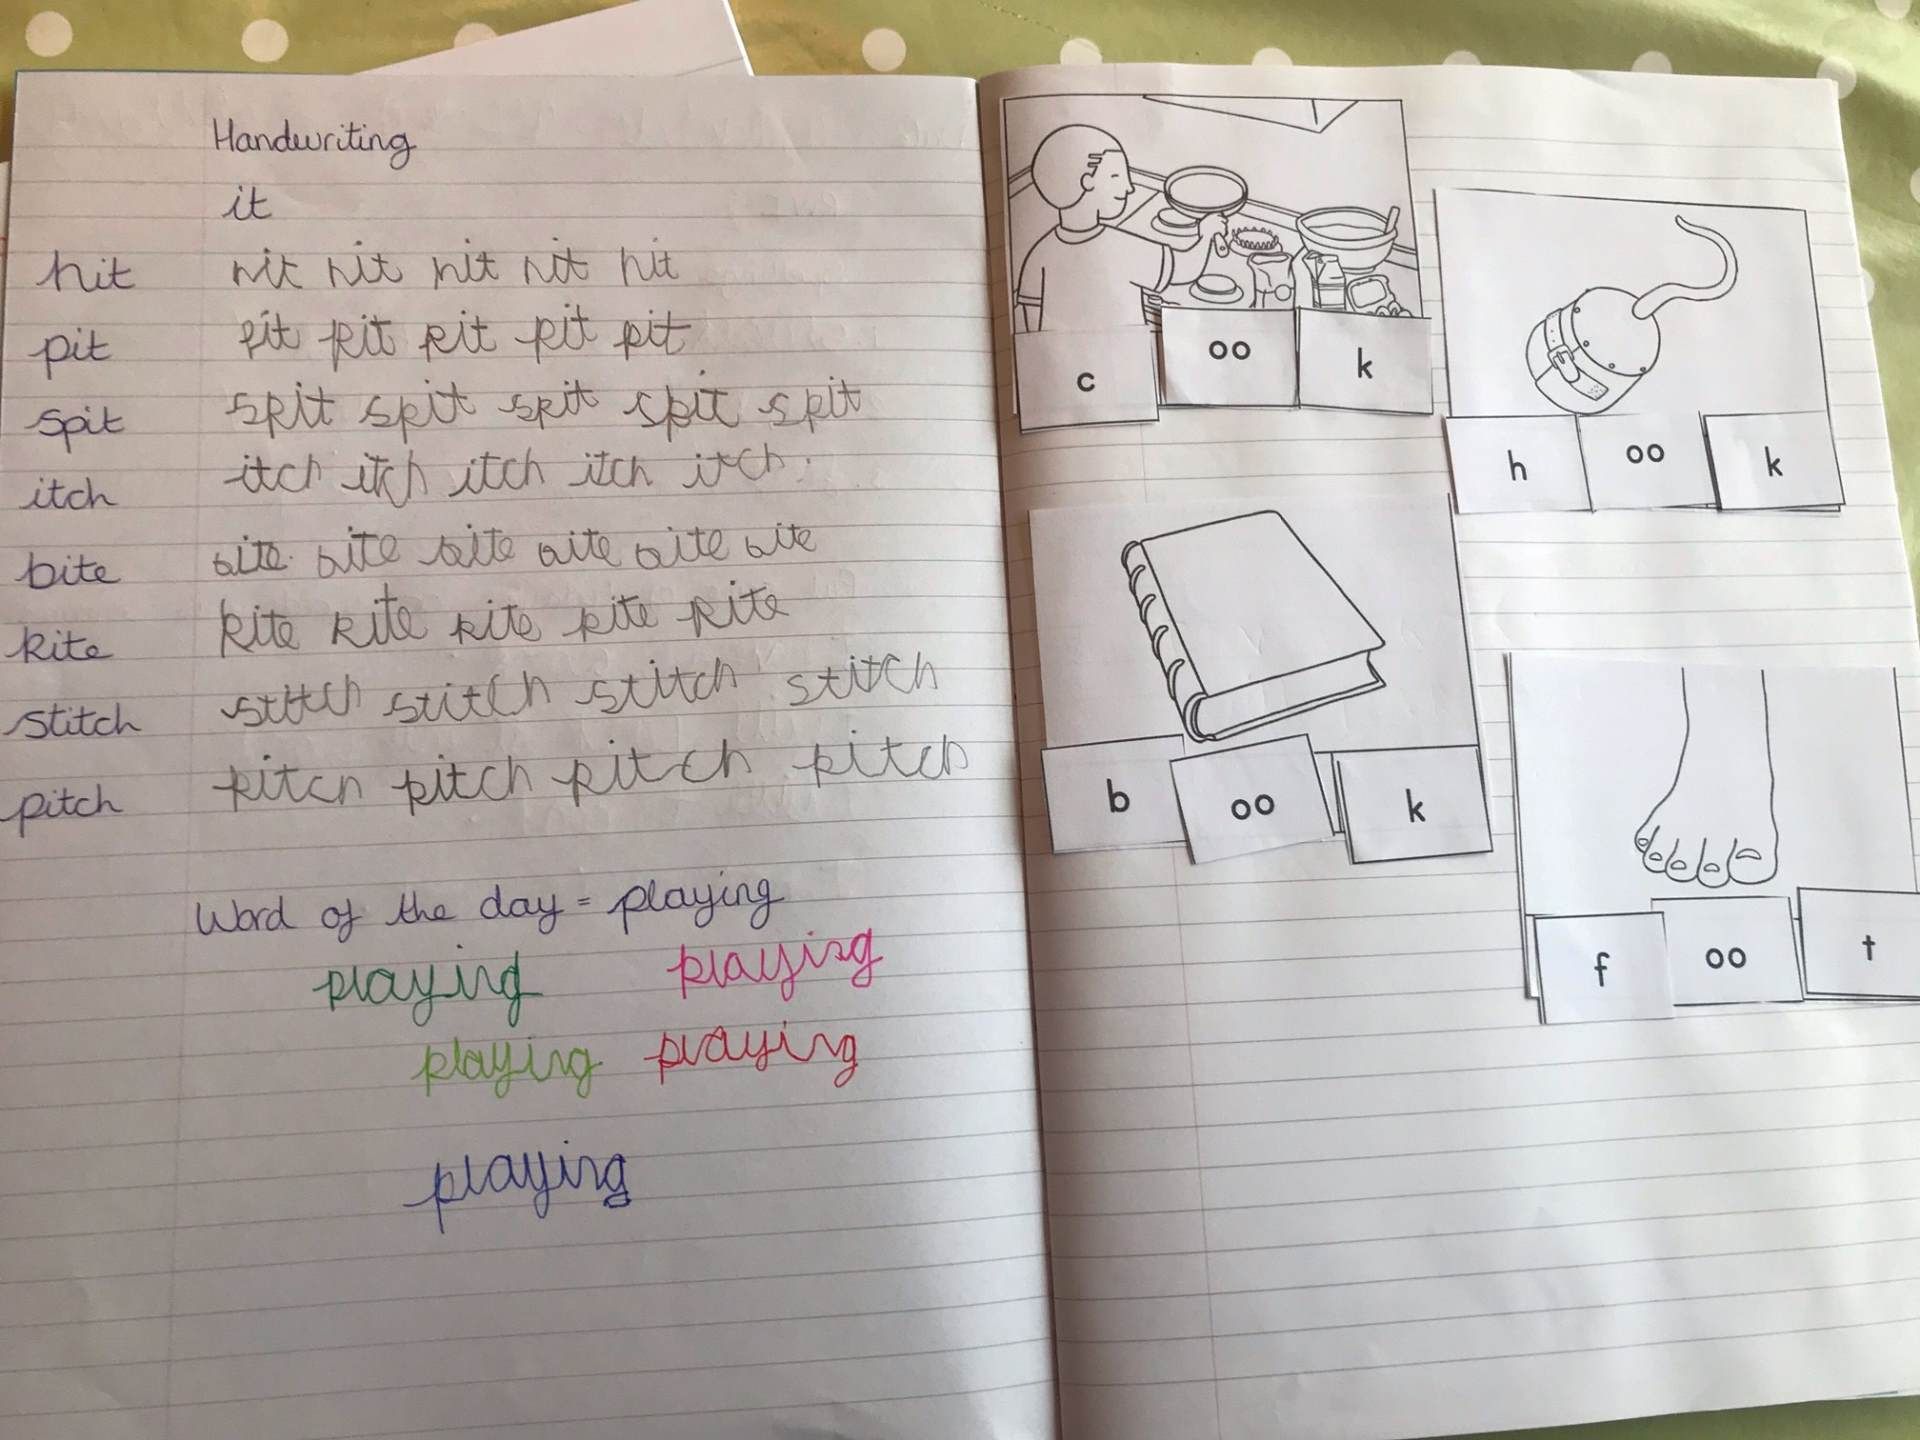 Handwriting
it
hit hit hit hit hit hit
pit pit pit pit pit pit
spit spit spit spit spit spit
itch itch itch itch itch itch.
bite bite bite bite bite bite bite
kite kite kite kite kite kite
stitch stitch stitch stitch stitch
pitch pitch pitch pitch pitch
Word of the day = playing
playing playing
playing playing
playing
c oo k
h oo k
b oo k
f oo t